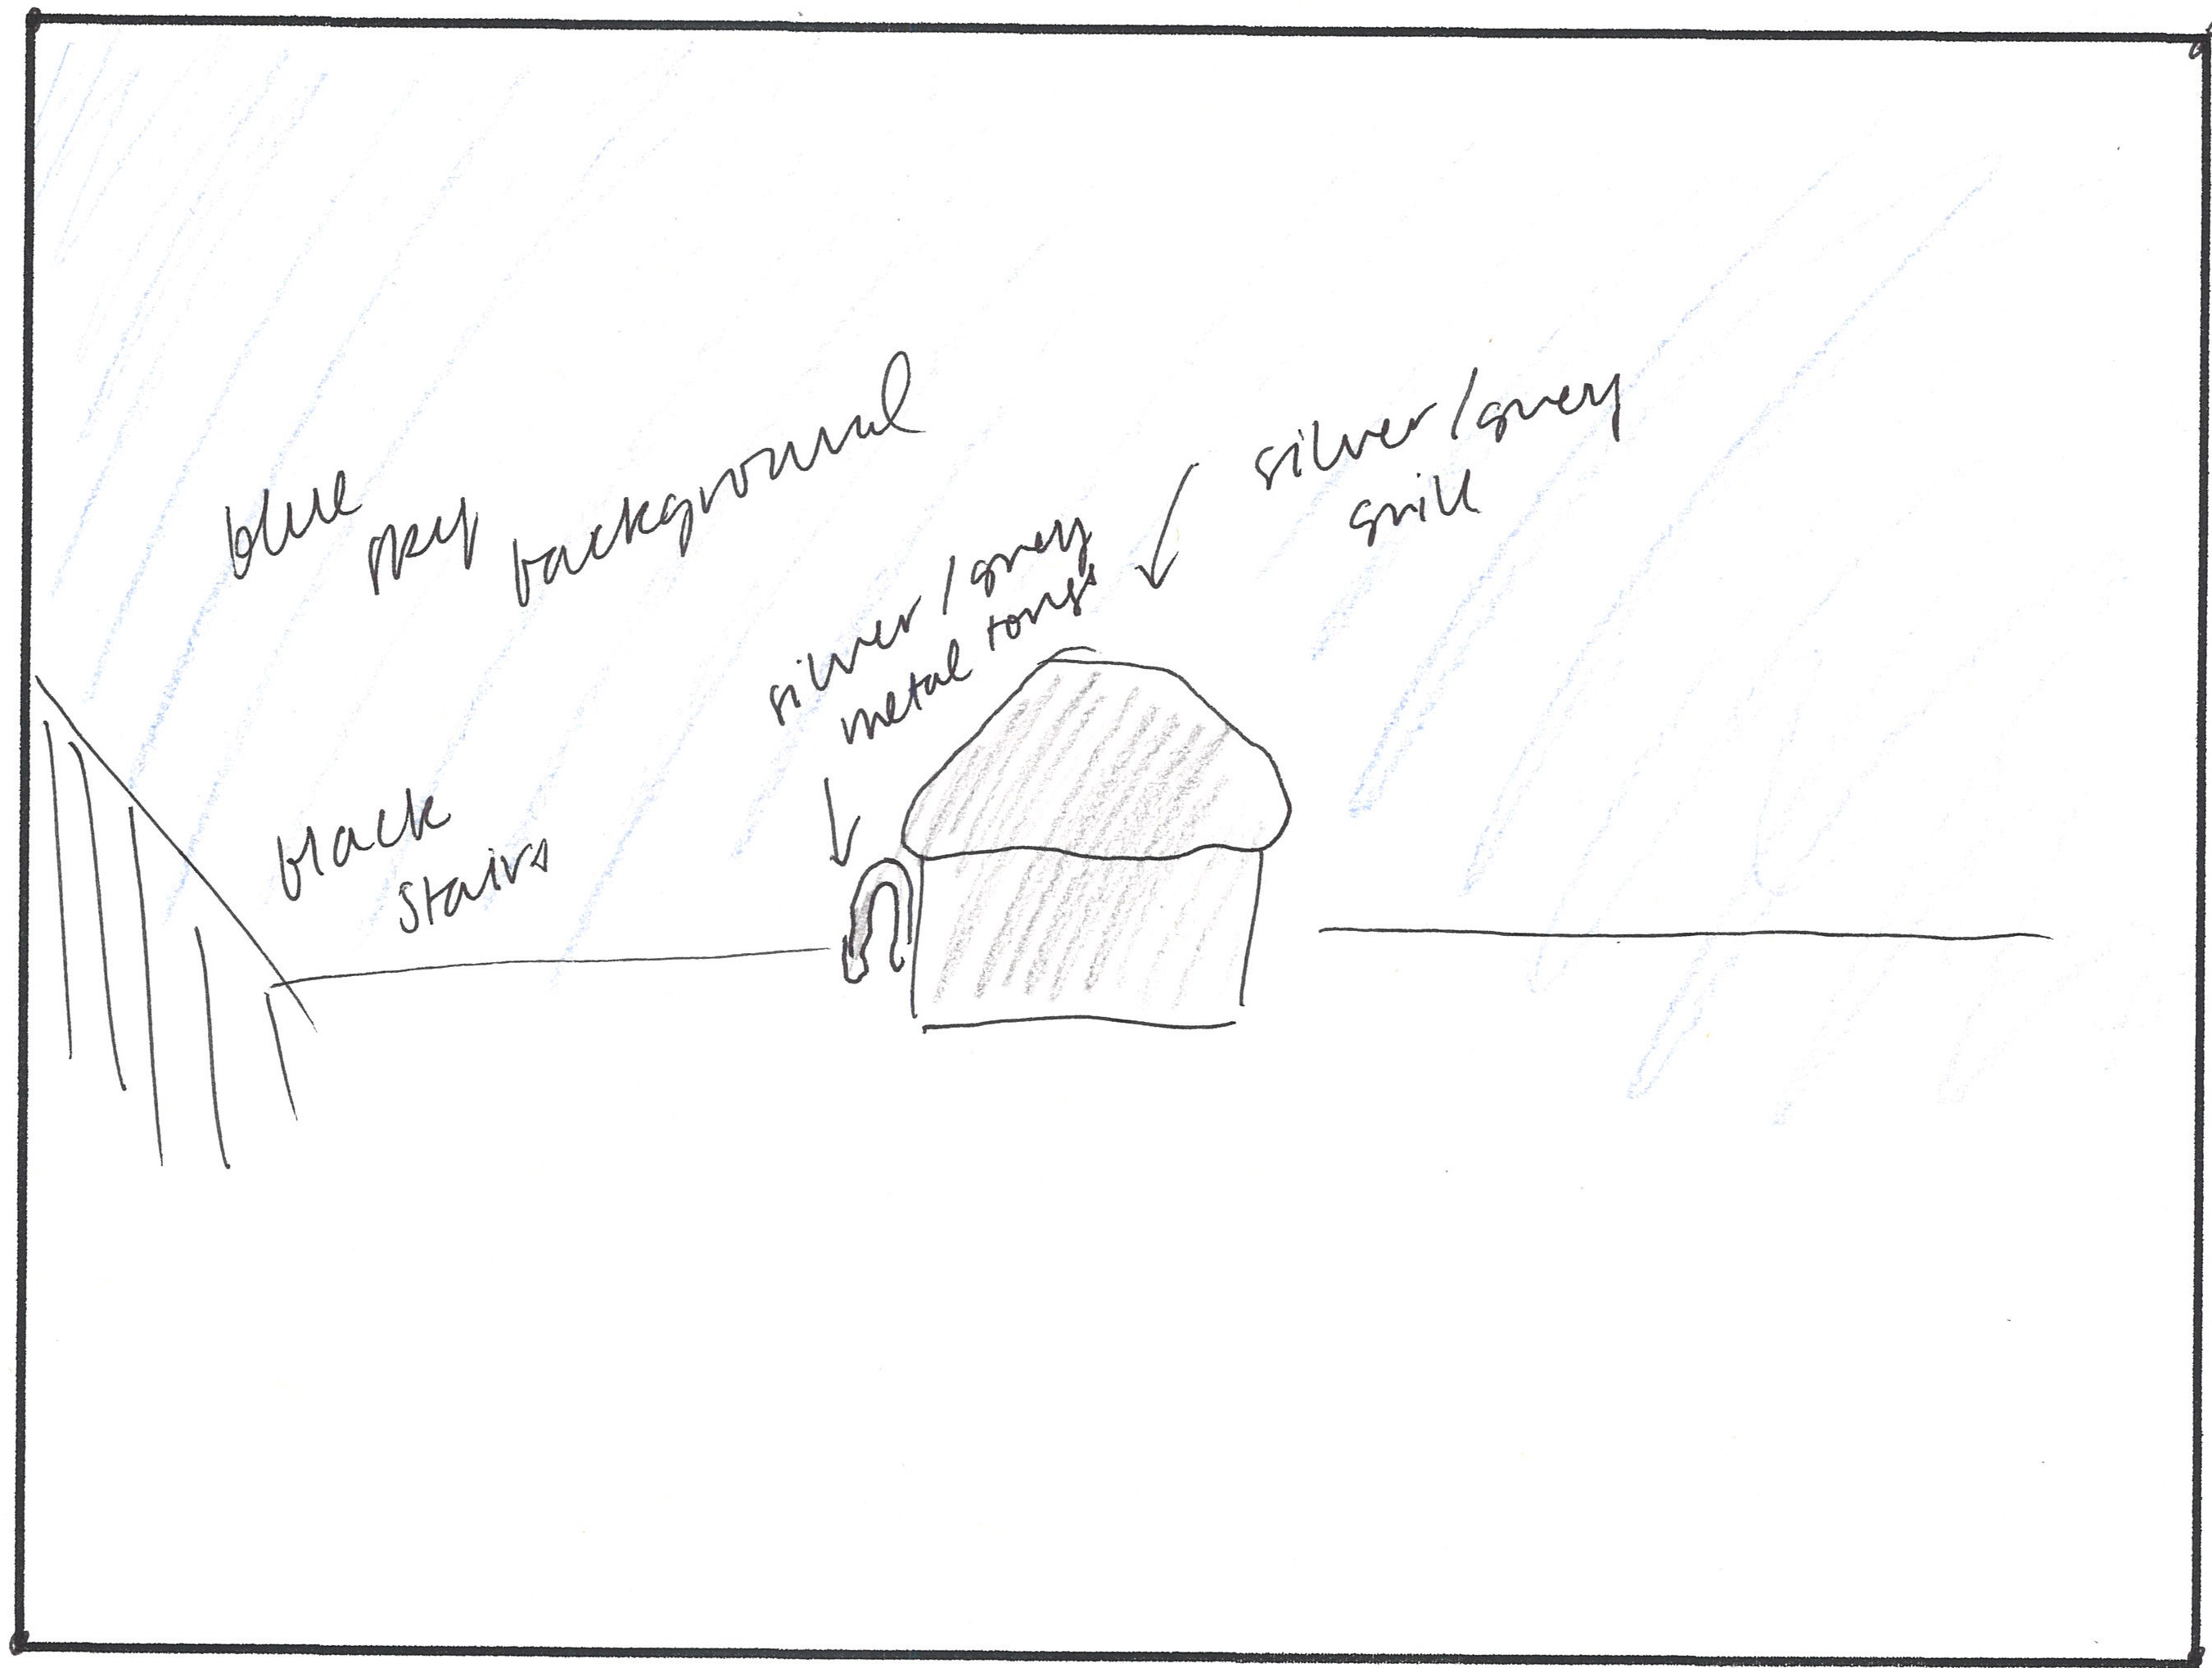 blue sky background
silver/grey
grill
silver/grey
metal tongs
black
stairs